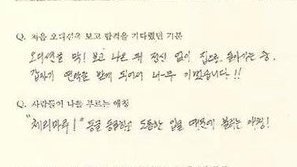 Q. 처음 오디션을 보고 합격을 기다렸던 기분
오디션을 막! 보고 나온 뒤 정신 없이 집으로 돌아가는 중,
갑자기 연락을 받게 되어서 너~무 기뻤습니다!!
Q. 사람들이 나를 부르는 애칭
"체리마루!" 동글 동글하고 도톰한 입술 때문에 불리는 애칭!